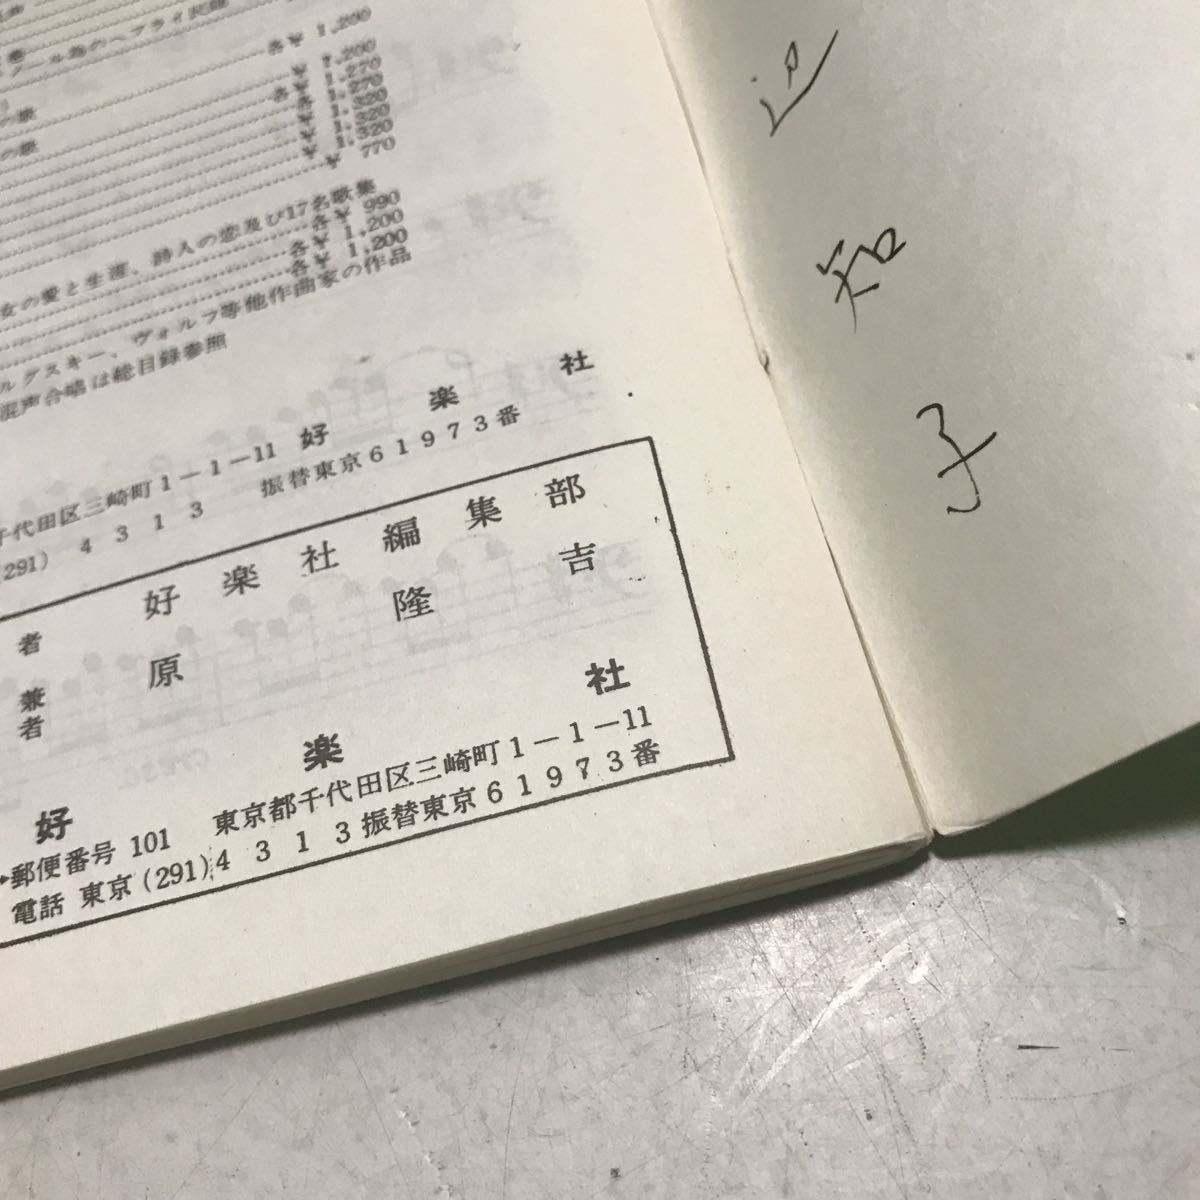 ール為のヘブライ民謡
各¥ 1,200
の歌
各¥ 1,200
¥ 1,270
の歌
各¥ 1,270
¥ 1,320
¥ 1,320
¥ 1,320
¥ 770
女の愛と生涯、詩人の恋及び17名歌集
各¥ 990
各¥ 1,200
各¥ 1,200
ルグスキー、ヴォルフ等他作曲家の作品
混声合唱は総目録参照
千代田区三崎町1－1－11 好楽社
291) 4313 振替東京61973番
者 好楽社編集部
兼者 原隆吉
好楽社
郵便番号 101 東京都千代田区三崎町1－1－11
電話 東京(291)4313振替東京61973番
知
子